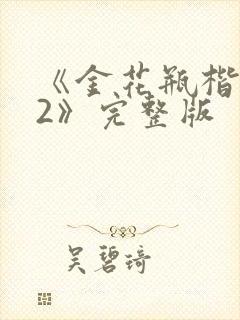 《金花瓶楷
2》完整版
吴碧琦